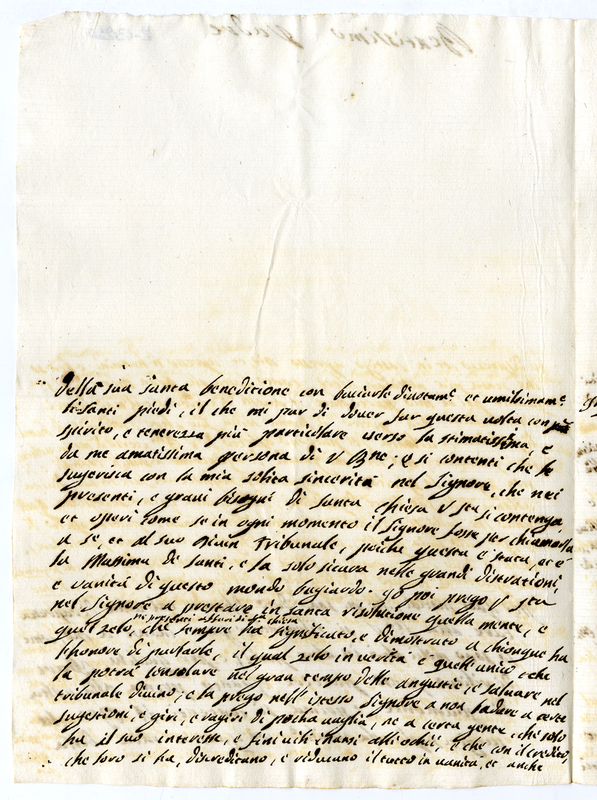 della sua santa beneditione con baciarle divotam.e et umilissimam.e
li santi piedi, il che mi par di dover far questa volta con più
spirito, e tenerezza più particolare verso la stimatissima, e
da me amatissima persona di V Bne; e si contenti che le
sugerisca con la mia solita sincerità nel Signore, che nei
presenti, e gravi bisogni di santa chiesa V Stà si contenga
et operi come se in ogni momento il Signore fosse per chiamarla
a se et al suo Divin Tribunale, poiche questa è stata, et è
la Massima di Santi, e la solo sicura nelle grandi distrationi,
e vanità di questo mondo bugiardo. Io poi prego V Stà
nel Signore a prestare in santa risolutione quella mente, e
ne presenti affari di sta chiesa
quel zelo, che sempre ha significato, e dimostrato a chiunque ha
l'honore di parlarle, il qual zelo in verità è quell'unico che
la potrà consolare nel gran tempo delle angustie, e salvare nel
tribunale divino; e la prego nell'istesso Signore a non badare a certe
sugestioni, e giri, e ragiri di pocha vaglia, ne a certa gente, che solo
ha il suo interesse, e fini vili inansi alli ochii, e che con il credito,
che loro si ha, discreditano, e riducano il tutto in vanità, et anche